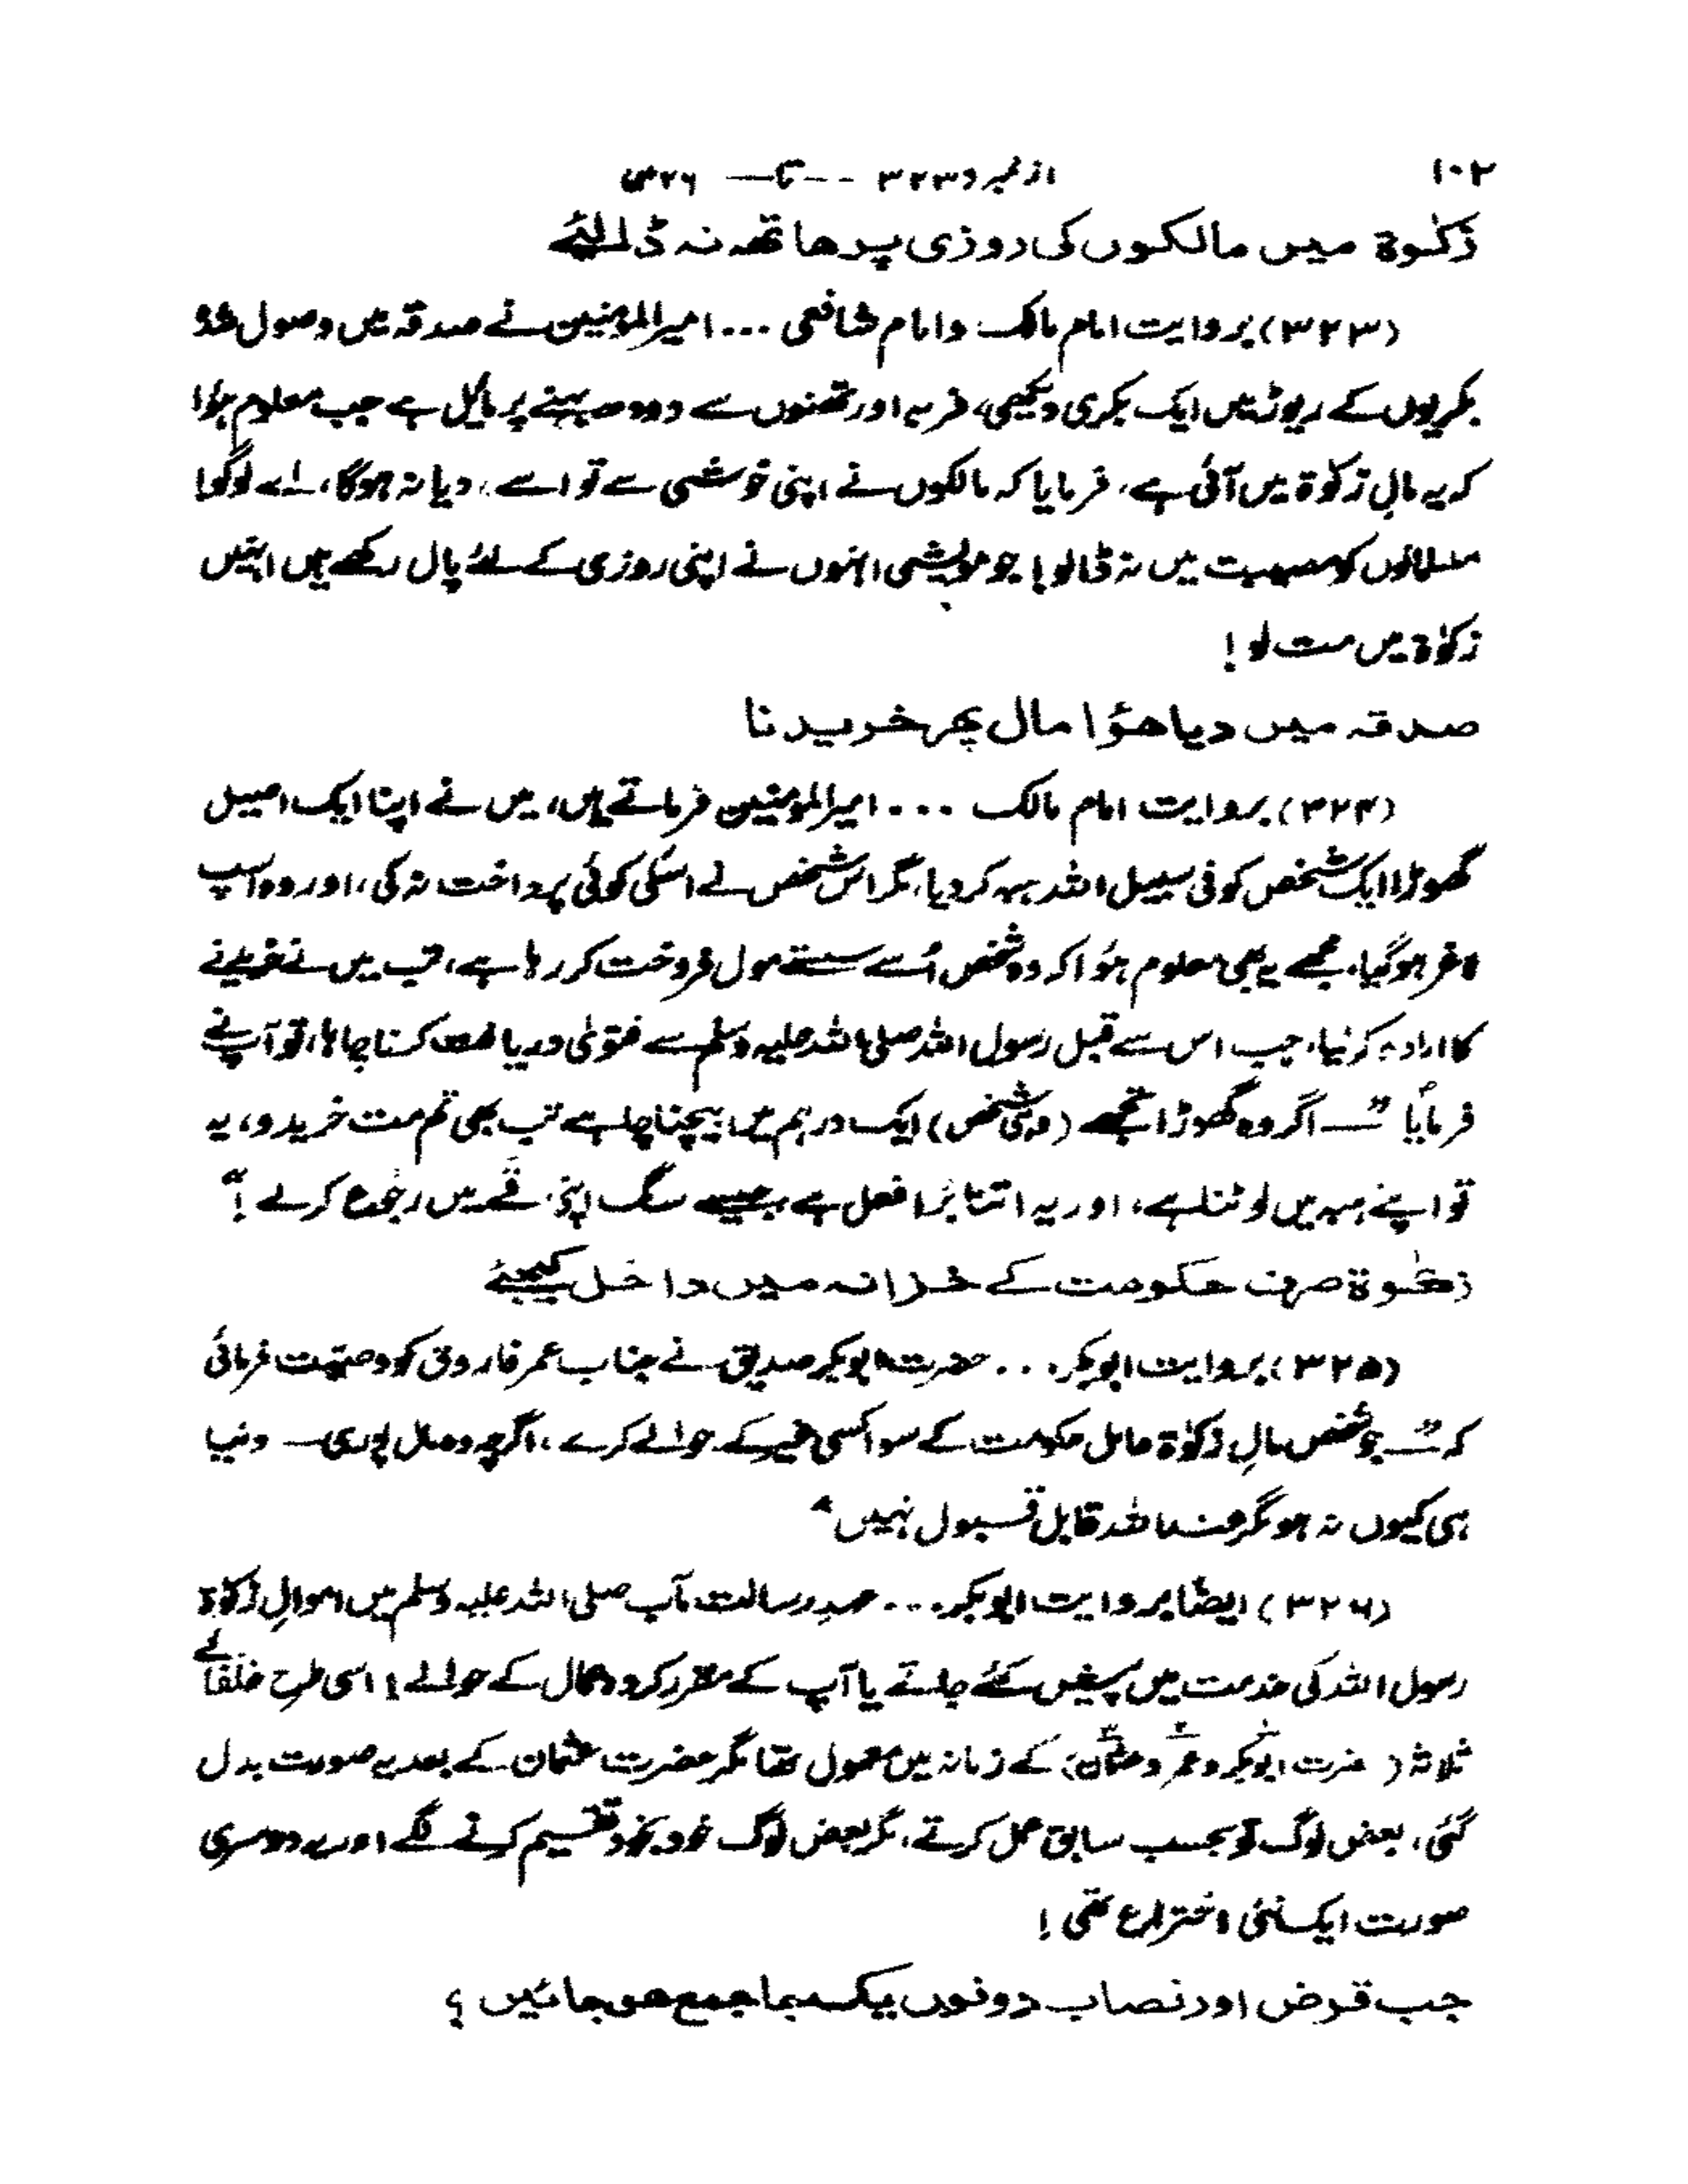 ۱۰۲
از نمبر ۳۲۳ -- تا — ۳۲۶
زکوٰۃ میں مالکوں کی روزی پر ہاتھ نہ ڈالئے
(۳۲۳) بروایت امام مالک و امام شافعی ... امیرالمؤمنین نے صدقہ میں وصول شدہ
بکریوں کے ریوڑ میں ایک بکری دیکھی، فربہ اور تھنوں سے دودھ بہنے پر مائل ہے جب معلوم ہؤا
کہ یہ مالِ زکوٰۃ میں آئی ہے، فرمایا کہ مالکوں نے اپنی خوشی سے تو اسے دیا نہ ہوگا، اے لوگو!
مسلمانوں کو مصیبت میں نہ ڈالو! جو مویشی انہوں نے اپنی روزی کے لئے پال رکھے ہیں انہیں
زکوٰۃ میں مت لو!
صدقہ میں دیا ہؤا مال پھر خریدنا
(۳۲۴) بروایت امام مالک ... امیرالمؤمنین فرماتے ہیں، میں نے اپنا ایک اصیل
گھوڑا ایک شخص کو فی سبیل اللہ ہبہ کر دیا، مگر اس شخص نے اسکی کوئی پرداخت نہ کی، اور وہ اسپ
لاغر ہوگیا، مجھے یہ بھی معلوم ہؤا کہ وہ شخص اُسے سستے مول فروخت کر رہا ہے، تب میں نے خریدنے
کا ارادہ کر لیا، جب اس سے قبل رسول اللہ صلی اللہ علیہ وسلم سے فتویٰ دریافت کرنا چاہا، تو آپ نے
فرمایا "— اگر وہ گھوڑا تجھے (وہی شخص) ایک درہم میں بیچنا چاہے تب بھی تم مت خریدو، یہ
تو اپنے ہبہ میں لوٹنا ہے، اور یہ اتنا بُرا فعل ہے جیسے سگ اپنی قے میں رجوع کر لے!"
زکوٰۃ صرف حکومت کے خزانہ میں داخل کیجئے
(۳۲۵) بروایت ابوبکر ... حضرت ابوبکر صدیق نے جناب عمر فاروق کو وصیّت فرمائی
کہ "— جو شخص مالِ زکوٰۃ عامل حکومت کے سوا کسی غیر کے حوالے کرے، اگرچہ وہ مال پوری — دنیا
ہی کیوں نہ ہو مگر عند اللہ قابل قبول نہیں"
(۳۲۶) ایضًا بروایت ابوبکر ... عہدِ رسالت مآب صلی اللہ علیہ وسلم میں اموالِ زکوٰۃ
رسول اللہ کی خدمت میں پیش کئے جاتے یا آپ کے مقرر کردہ عمال کے حوالے! اسی طرح خلفائے
ثلاثہ (حضرت ابوبکرؓ و عمرؓ و عثمانؓ) کے زمانہ میں معمول تھا مگر حضرت عثمان کے بعد یہ صورت بدل
گئی، بعض لوگ تو بحسب سابق عمل کرتے، مگر بعض لوگ خود بخود تقسیم کرنے لگے اور یہ دوسری
صورت ایک نئی اختراع تھی!
جب قرض اور نصاب دونوں یک جا جمع ہو جائیں؟